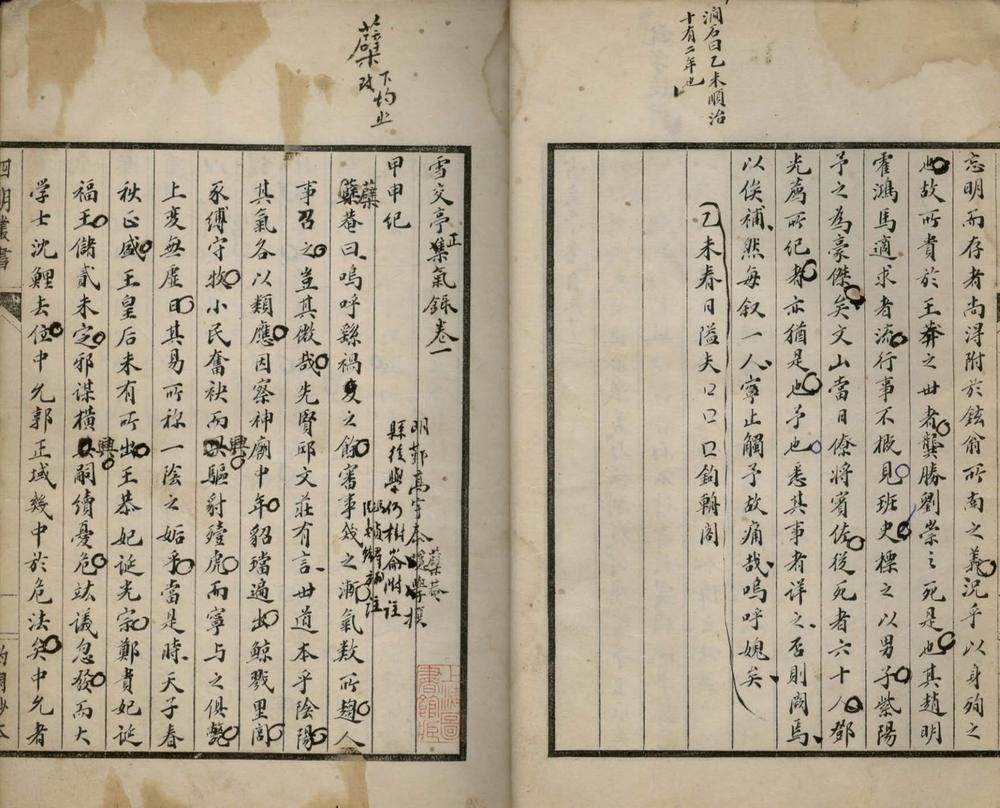 澗石曰乙未順治
十有二年也
忘明而存者尚淂附於鉉翁所南之義況乎以身殉之
也故所貴於王莾之世者龔勝劉崇之死是也其趙明
霍鴻馬適求者流行事不概見班史標之以男子紫陽
予之為豪傑矣文山當日僚将賓佐從死者六十人鄧
光薦所纪者亦猶是也予也悉其事者详之否則阙焉
以俟補然每叙一人寧止觸予故痛哉嗚呼媿矣
乙未春日隘夫口口口鈞韝阁
蘖
下均止
改
雪交亭正集氣録卷一
明鄞髙宇泰蘖菴撰
縣後學何樹崙附註
甲申纪
蘖菴曰嗚呼繇禍變之餘審事幾之漸氣数所趨人
事召之豈其微哉先賢邱文莊有言世道本乎陰陽
其氣各以類應因察神廟中年貂璫遍出鲸戮里閭
豕縛守牧小民奮袂而興驅豺殪虎而寧与之俱斃
上爻無虚日其易所称一陰之姤乎當是時天子春
秋正盛王皇后未有所出王恭妃诞光宗鄭貴妃诞
福王儲貳未定邪谋横興嗣續憂危竑議忽發而大
学士沈鯉去位中允郭正域幾中於危法矣中允者
四明叢書
約園抄本
上海圖書館藏